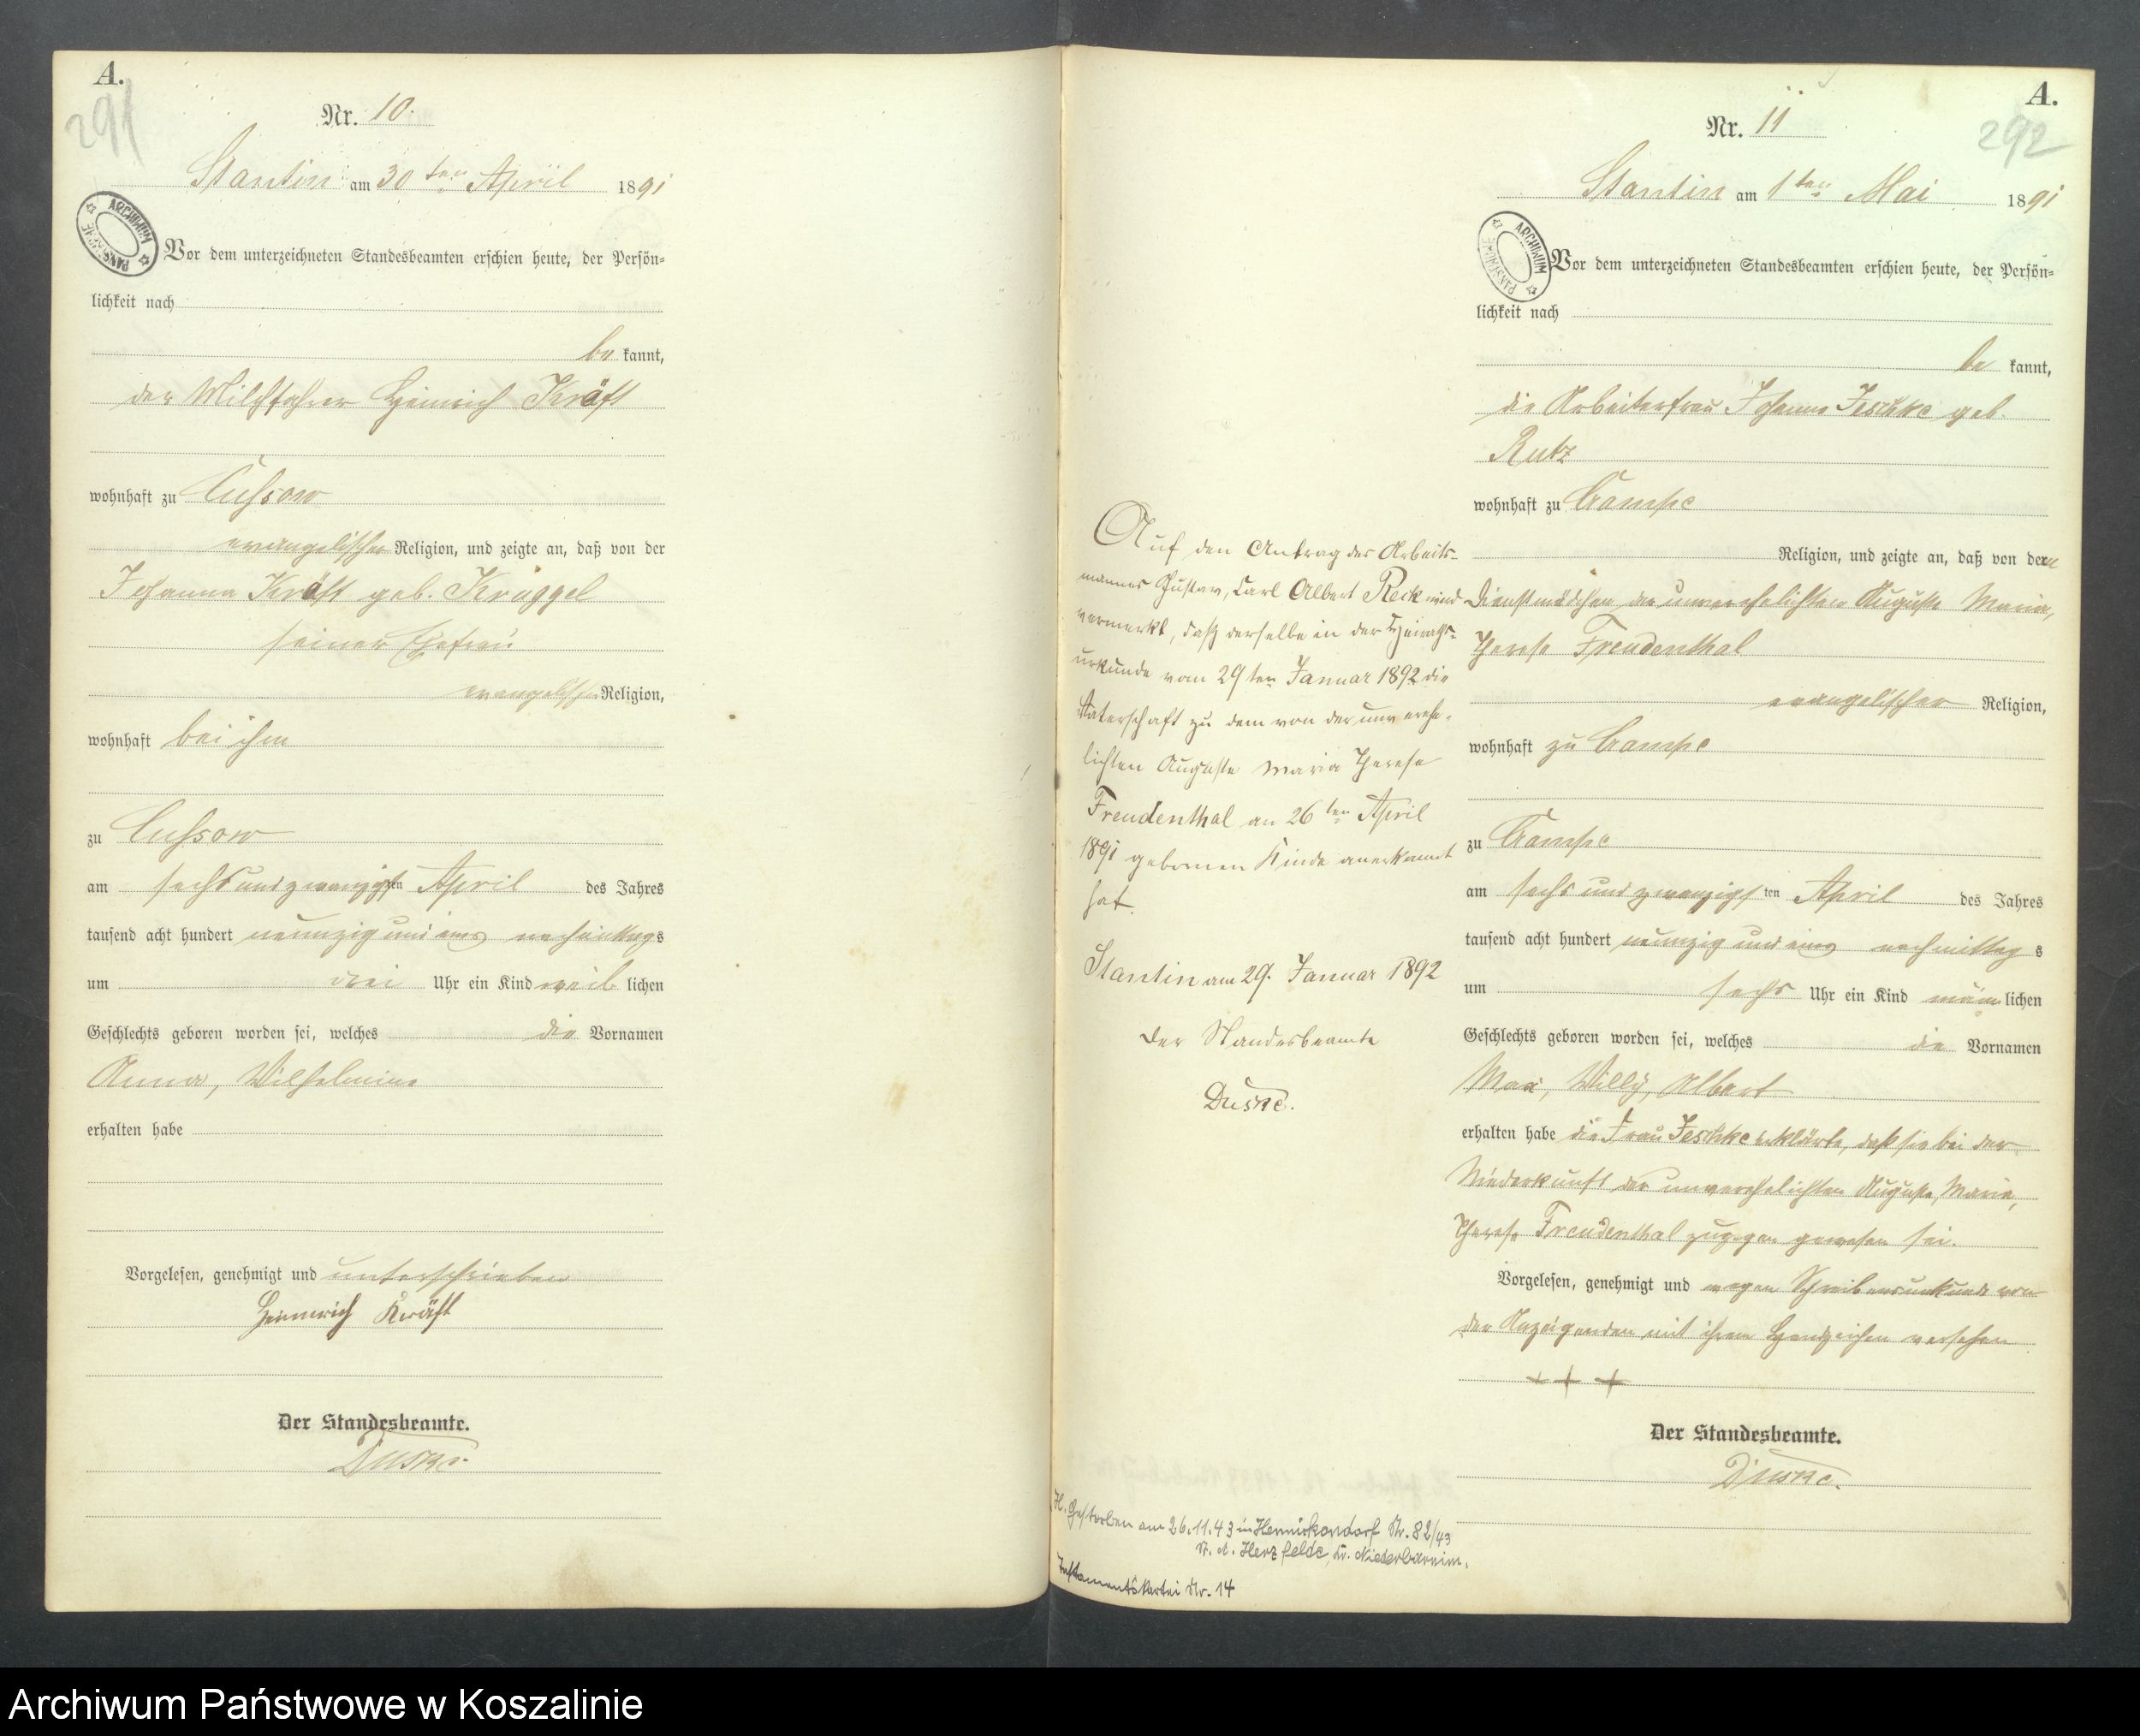 A.
291
Nr. 10.
Stantin am 30ten April 1891
ARCHIWUM PAŃSTWOWE
Vor dem unterzeichneten Standesbeamten erschien heute, der Persön=
lichkeit nach
be kannt,
der Milchfahrer Heinrich Kräft
wohnhaft zu Cussow
evangelischer Religion, und zeigte an, daß von der
Johanna Kräft geb. Krüggel
seiner Ehefrau
evangelischer Religion,
wohnhaft bei ihm
zu Cussow
am sechs und zwanzigsten April des Jahres
tausend acht hundert neunzig und eins nachmittags
um drei Uhr ein Kind weib lichen
Geschlechts geboren worden sei, welches die Vornamen
Anna, Wilhelmine
erhalten habe
Vorgelesen, genehmigt und unterschrieben
Heinrich Kräft
Der Standesbeamte.
Duske.
A.
292
Nr. 11
Stantin am 1ten Mai 1891
ARCHIWUM PAŃSTWOWE
Vor dem unterzeichneten Standesbeamten erschien heute, der Persön=
lichkeit nach
be kannt,
die Arbeiterfrau Johanne Jeschke geb.
Rutz
wohnhaft zu Campe
Religion, und zeigte an, daß von dem
Dienstmädchen der unverehelichten Auguste Maria,
Therese Freudenthal
evangelischer Religion,
wohnhaft zu Campe
zu Campe
am sechs und zwanzigsten April des Jahres
tausend acht hundert neunzig und eins nachmittag s
um sechs Uhr ein Kind männ lichen
Geschlechts geboren worden sei, welches die Vornamen
Max, Willy, Albert
erhalten habe die Frau Jeschke erklärte, daß sie bei der
Niederkunft der unverehelichten Auguste, Maria,
Therese Freudenthal zugegen gewesen sei.
Vorgelesen, genehmigt und wegen Schreibensunkunde von
der Anzeigenden mit ihrem Handzeichen versehen
+ + +
Der Standesbeamte.
Duske.
Auf den Antrag des Arbeits-
mannes Gustav, Carl Albert Reck wird
vermerkt, daß derselbe in der Heiraths-
urkunde vom 29ten Januar 1892 die
Vaterschaft zu dem von der unverehe-
lichten Auguste Maria Therese
Freudenthal am 26ten April
1891 gebornen Kinde anerkannt
hat.
Stantin am 29. Januar 1892
Der Standesbeamte
Duske.
H. Gestorben am 26.11.43 in Hennickendorf Nr. 82/43
St. A. Herzfelde, Kr. Niederbarnim.
Testamentskartei Nr. 14
Archiwum Państwowe w Koszalinie